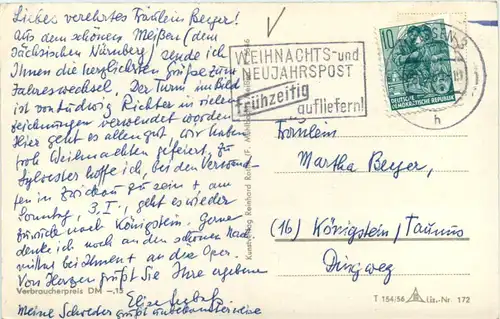 Liebes verehrtes Fräulein Beyer!
Aus dem schönen Meißen (dem
sächsischen Nürnberg) sende ich
Ihnen die herzlichsten Grüße zum
Jahreswechsel. Der Turm im Bild
ist von Ludwig Richter in vielen
Zeichnungen verwendet worden.
Hier geht es allen gut, wir haben
froh Weihnachten gefeiert, zu
Sylvester hoffe ich, bei den Verwand-
ten in Zwickau zu sein + am
Sonntag, 3. I., geht es wieder
zurück nach Königstein. Gerne
denke ich noch an den schönen Nach
mittag bei Ihnen + an die Oper.
Von Herzen grüßt Sie Ihre ergebene
Verbraucherpreis DM -,15
Elise
Meine Schwester grüßt unbekannterweise
Kunstverlag Reinhard
WEIHNACHTS- und
NEUJAHRSPOST
Frühzeitig
aufliefern!
10
DEUTSCHE
DEMOKRATISCHE REPUBLIK
h
Fräulein
Martha Beyer,
(16) Königstein/Taunus
Ölmühlweg
T 154/56 Liz.-Nr. 172